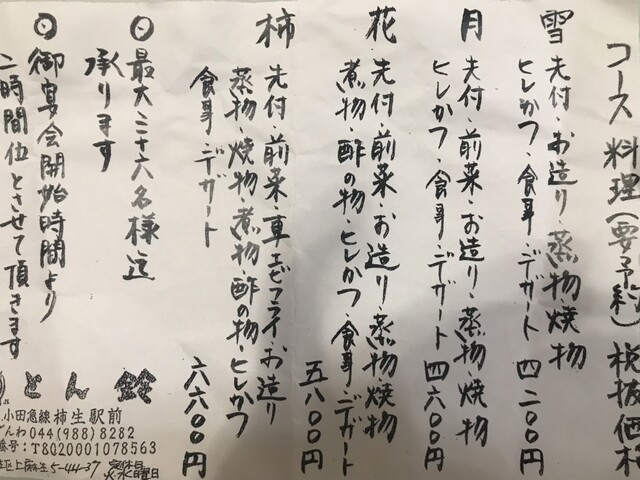 コース料理(要予約)税抜価格
雪 先付・お造り・蒸物・焼物
ヒレかつ・食事・デザート 四二〇〇円
月 先付・前菜・お造り・蒸物・焼物
ヒレかつ・食事・デザート 四六〇〇円
花 先付・前菜・お造り・蒸物・焼物
煮物・酢の物・ヒレかつ・食事・デザート
五八〇〇円
柿 先付・前菜・車エビフライ・お造り
蒸物・焼物・煮物・酢の物・ヒレかつ
食事・デザート 六六〇〇円
◎最大三十六名様迄
承ります
◎御宴会開始時間より
二時間位とさせて頂きます
とん鈴
小田急線柿生駅前
でんわ044(988)8282
番号:T8020001078563
区上麻生5-44-37 定休日 火・水曜日